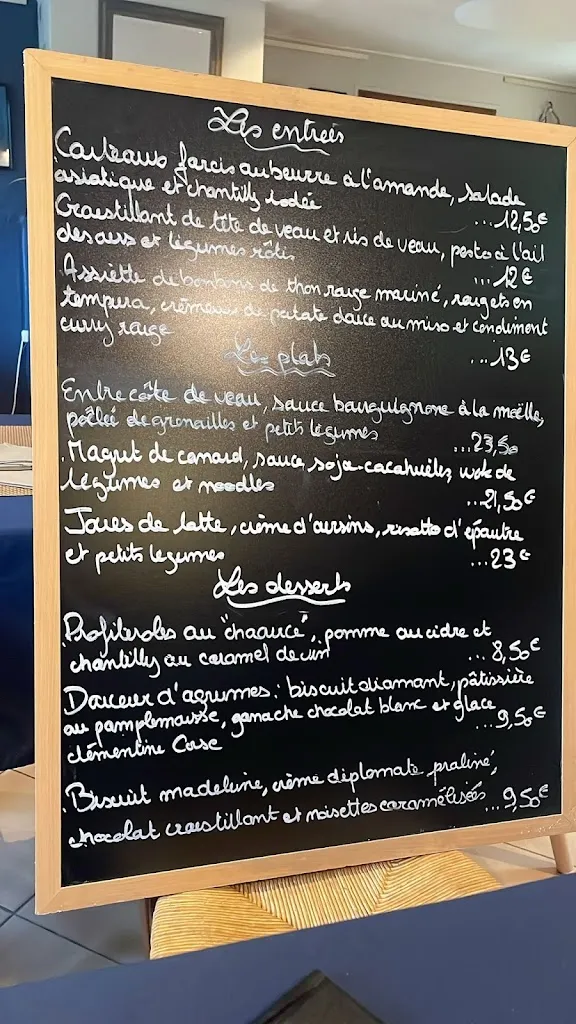 Les entrées
Couteaux farcis au beurre à l'amande, salade
asiatique et chantilly iodée
...12,50€
Croustillant de tête de veau et ris de veau, pesto à l'ail
des ours et légumes rôtis
...12€
Assiette de bonbons de thon rouge mariné, rougets en
tempura, crémeux de patate douce au miso et condiment
curry rouge
...13€
Les plats
Entrecôte de veau, sauce bourguignonne à la moëlle,
poêlée de grenailles et petits légumes
...23,50
Magret de canard, sauce soja-cacahuètes, wok de
légumes et noodles
...21,50€
Joues de lotte, crème d'oursins, risotto d'épautre
et petits legumes
...23€
Les desserts
Profiteroles au "chaource", pomme au cidre et
chantilly au caramel de
... 8,50€
Douceur d'agrumes : biscuit diamant, pâtissière
au pamplemousse, ganache chocolat blanc et glace
...9,50€
clémentine Corse
Biscuit madeleine, crème diplomate praliné,
chocolat croustillant et noisettes caramélisées ...9,50€